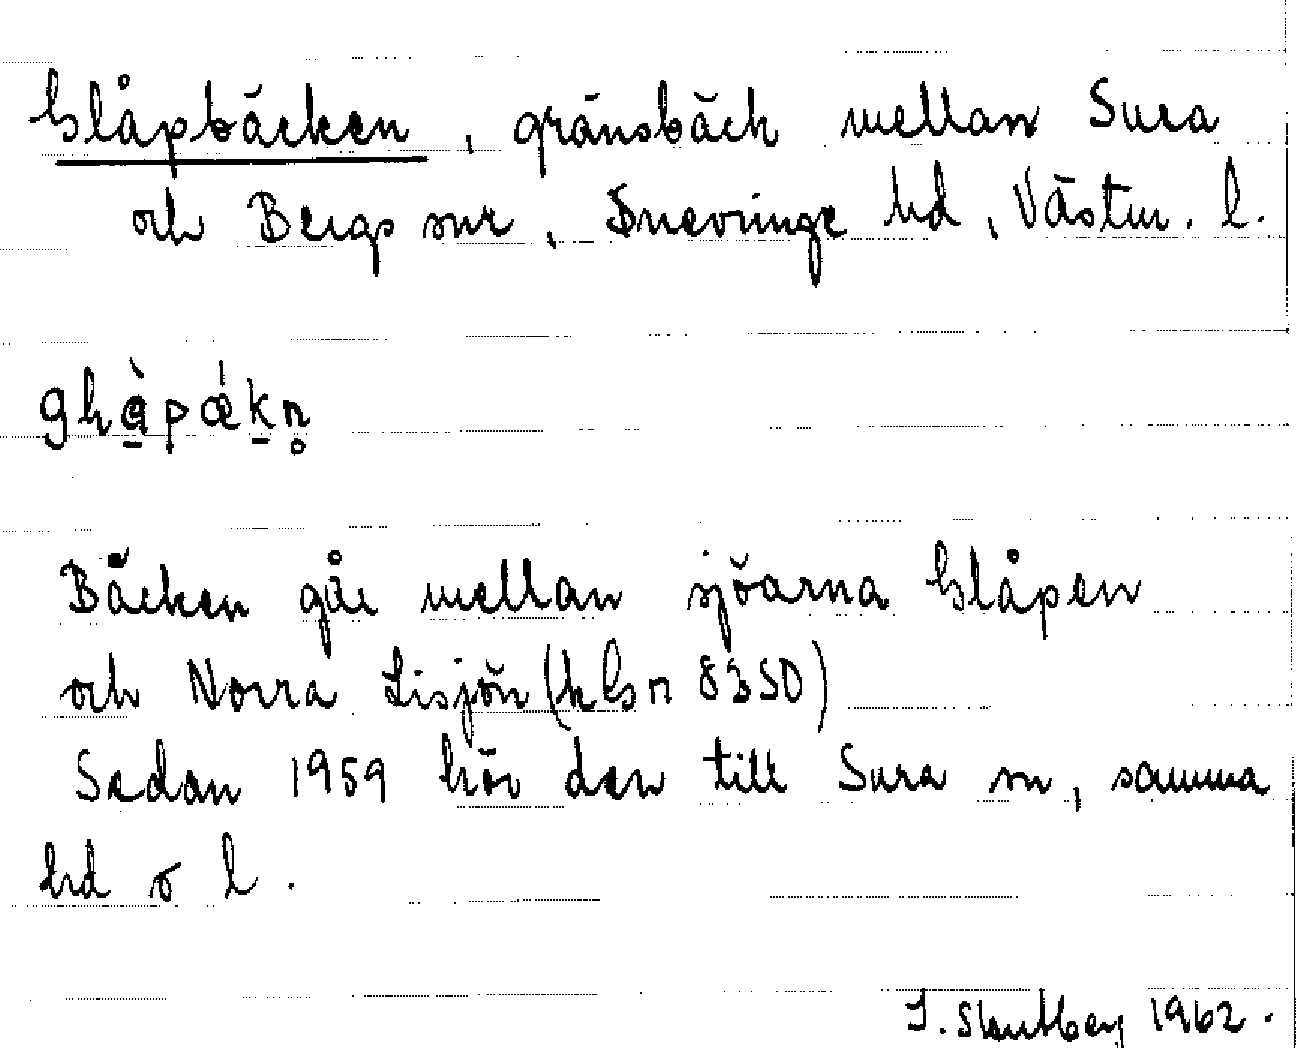 Glåpbäcken, gränsbäck mellan Sura
och Bergs snr, Snevringe hd, Västm. l.
ghå̀pǽkn̥
Bäcken går mellan sjöarna Glåpen
och Norra Lisjön (kbn 8350)
Sedan 1959 hör den till Sura sn, samma
hd o l.
1962.